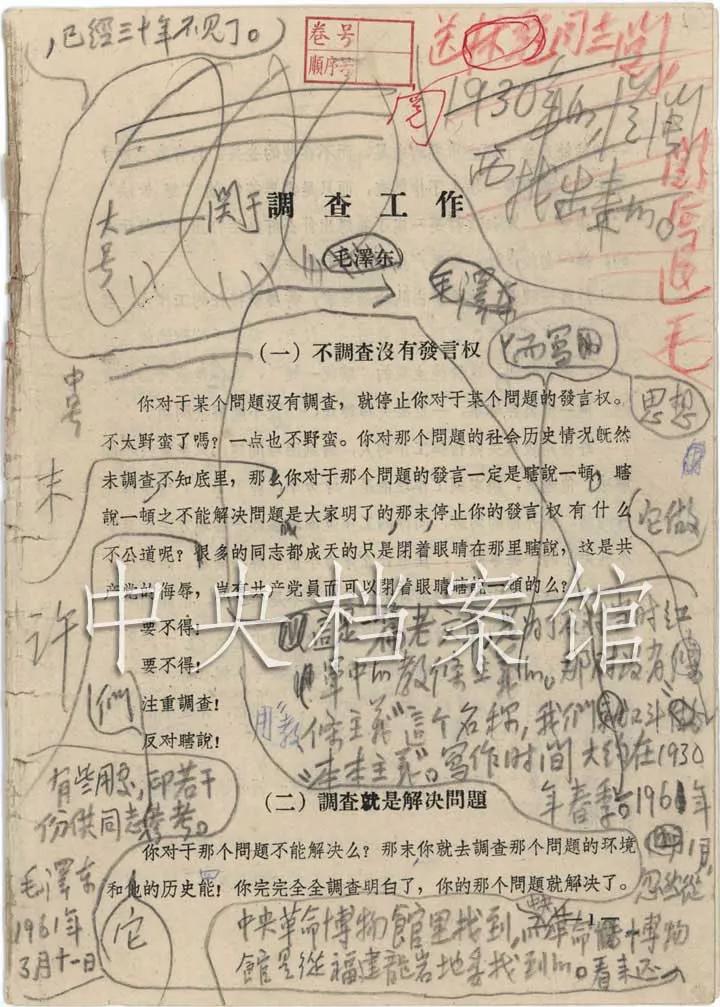 ，已經三十年不見了。）
卷号
順序号
送林彪同志阅
1930年的，
西找出来的。
阅后退毛
大号
关于調查工作
毛澤东
毛澤东
（一）不調查沒有發言权
中号
思想
你对于某个問題沒有調查，就停止你对于某个問題的發言权。
不太野蛮了嗎？一点也不野蛮。你对那个問題的社会历史情况既然
未調查不知底里，那么你对于那个問題的發言一定是瞎說一頓，瞎
說一頓之不能解决問題是大家明了的，那末，停止你的發言权有什么
不公道呢？很多的同志都成天的只是閉着眼睛在那里瞎說，这是共
产党的侮辱，岂有共产党員而可以閉着眼睛瞎說一頓的么？
末
它做
許
要不得！
要不得！
們
注重調查！
反对瞎說！
中央档案馆
这是一篇老文章，是为了反对当时紅
軍中的教條主義的。那时沒有
用
“教
條主義”這个名称，我們叫它
“本本主義”。寫作时间大約在1930
年春季。1961年
1月，
忽然從
有些用，印若干
份供同志參考。
毛澤东
1961年
3月十一日
（二）調查就是解决問題
你对于那个問題不能解决么？那末，你就去調查那个問題的环境
和他的历史能！你完完全全調查明白了，你的那个問題就解决了。
它
·1·
中央革命博物館里找到，而革命博物
館是從福建龍岩地委找到的。看来还